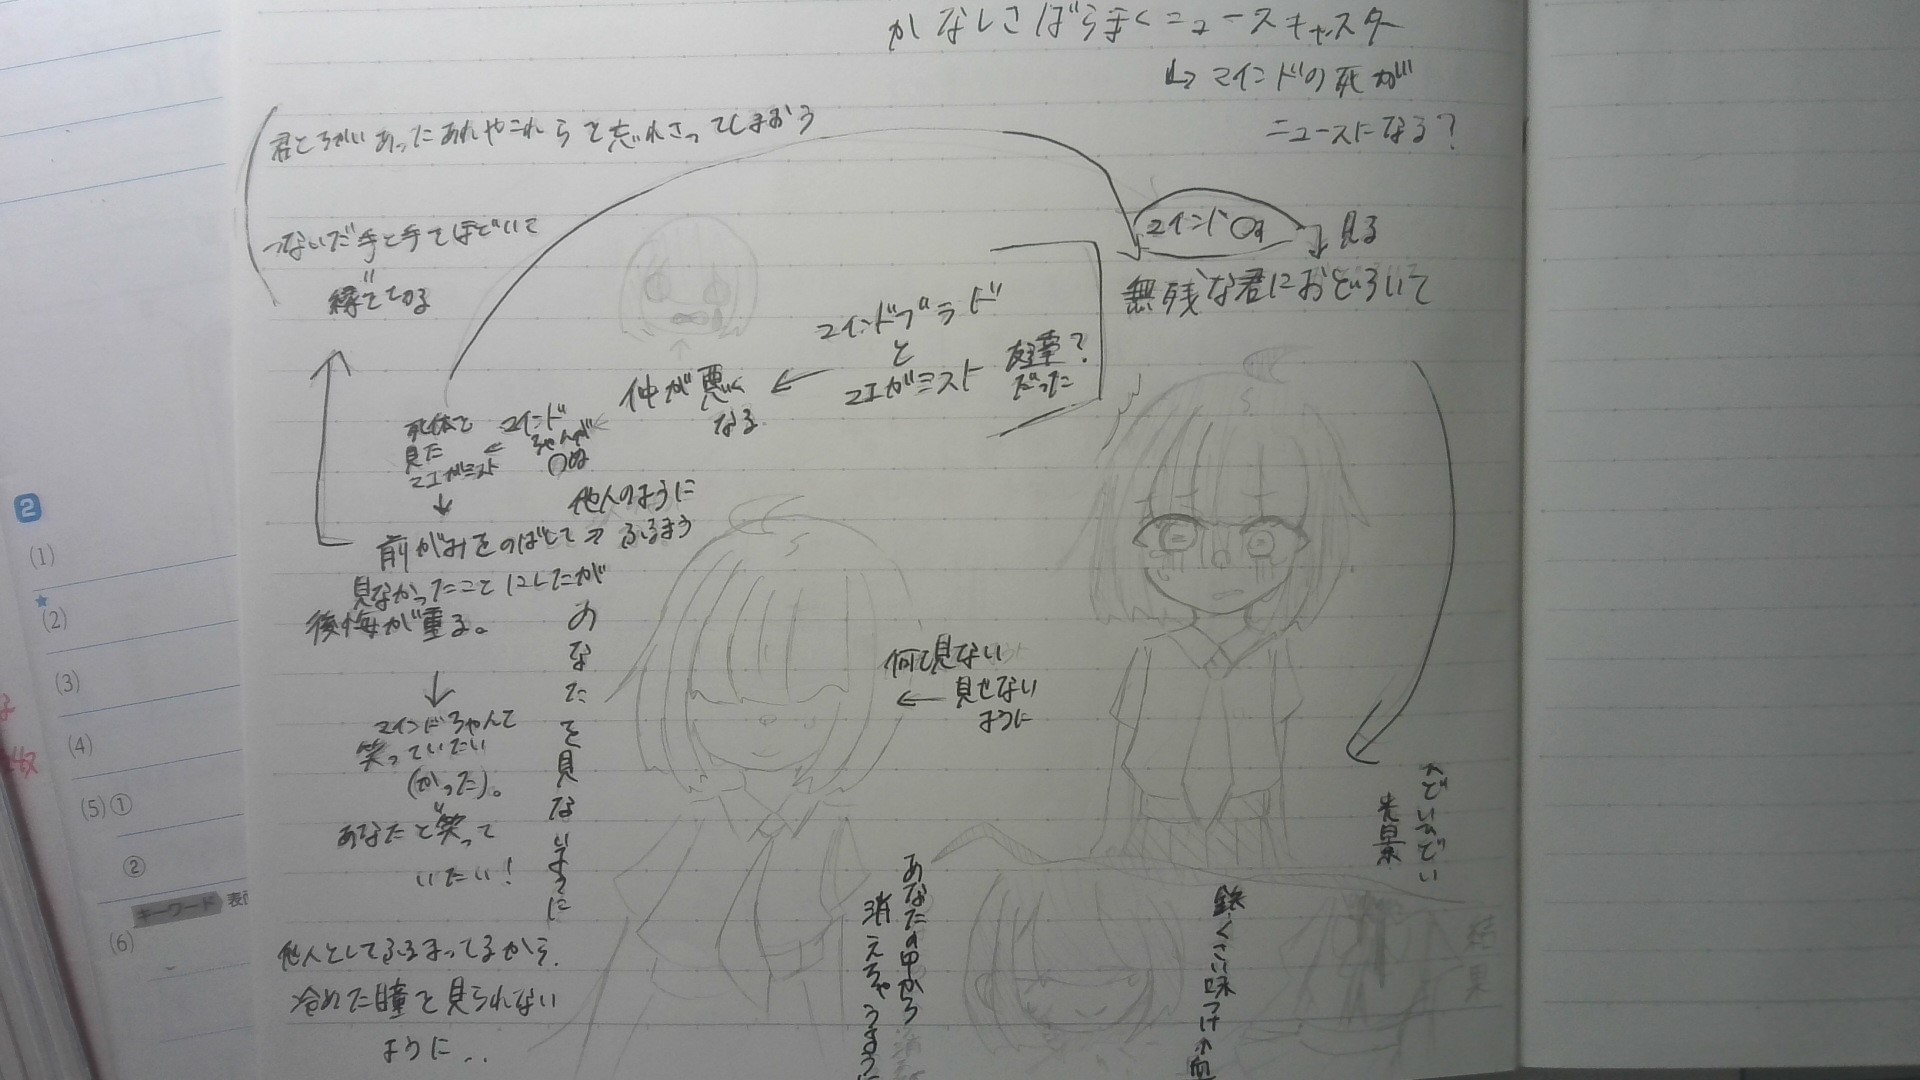 かなしさばらまくニュースキャスター
↳マインドの死が
ニュースになる?
君とちがいあったあれやこれらを忘れさってしまおう
つないだ手と手をほどいて
マインドの死
見る
無残な君におどろいて
マインドブラッド
と
マエガミスト
友達?
だった
仲が悪く
なる
マインド
ちゃんが
○ぬ
死体を
見た
マエガミスト
他人のように
ふるまう
前がみをのばして
見なかったことにしたが
後悔が重る。
マインドちゃんて
笑っていたい
(かった)。
あなたと笑って
いたい!
あなたを見ないように
何も見ない
見せない
ように
光景
他人としてふるまってるから、
冷めた瞳を見られない
ように..
あなたの中から
消えちゃうように
鉄くさい味つけの血
2
(1)
(2)
(3)
(4)
(5)①
②
キーワード
(6)